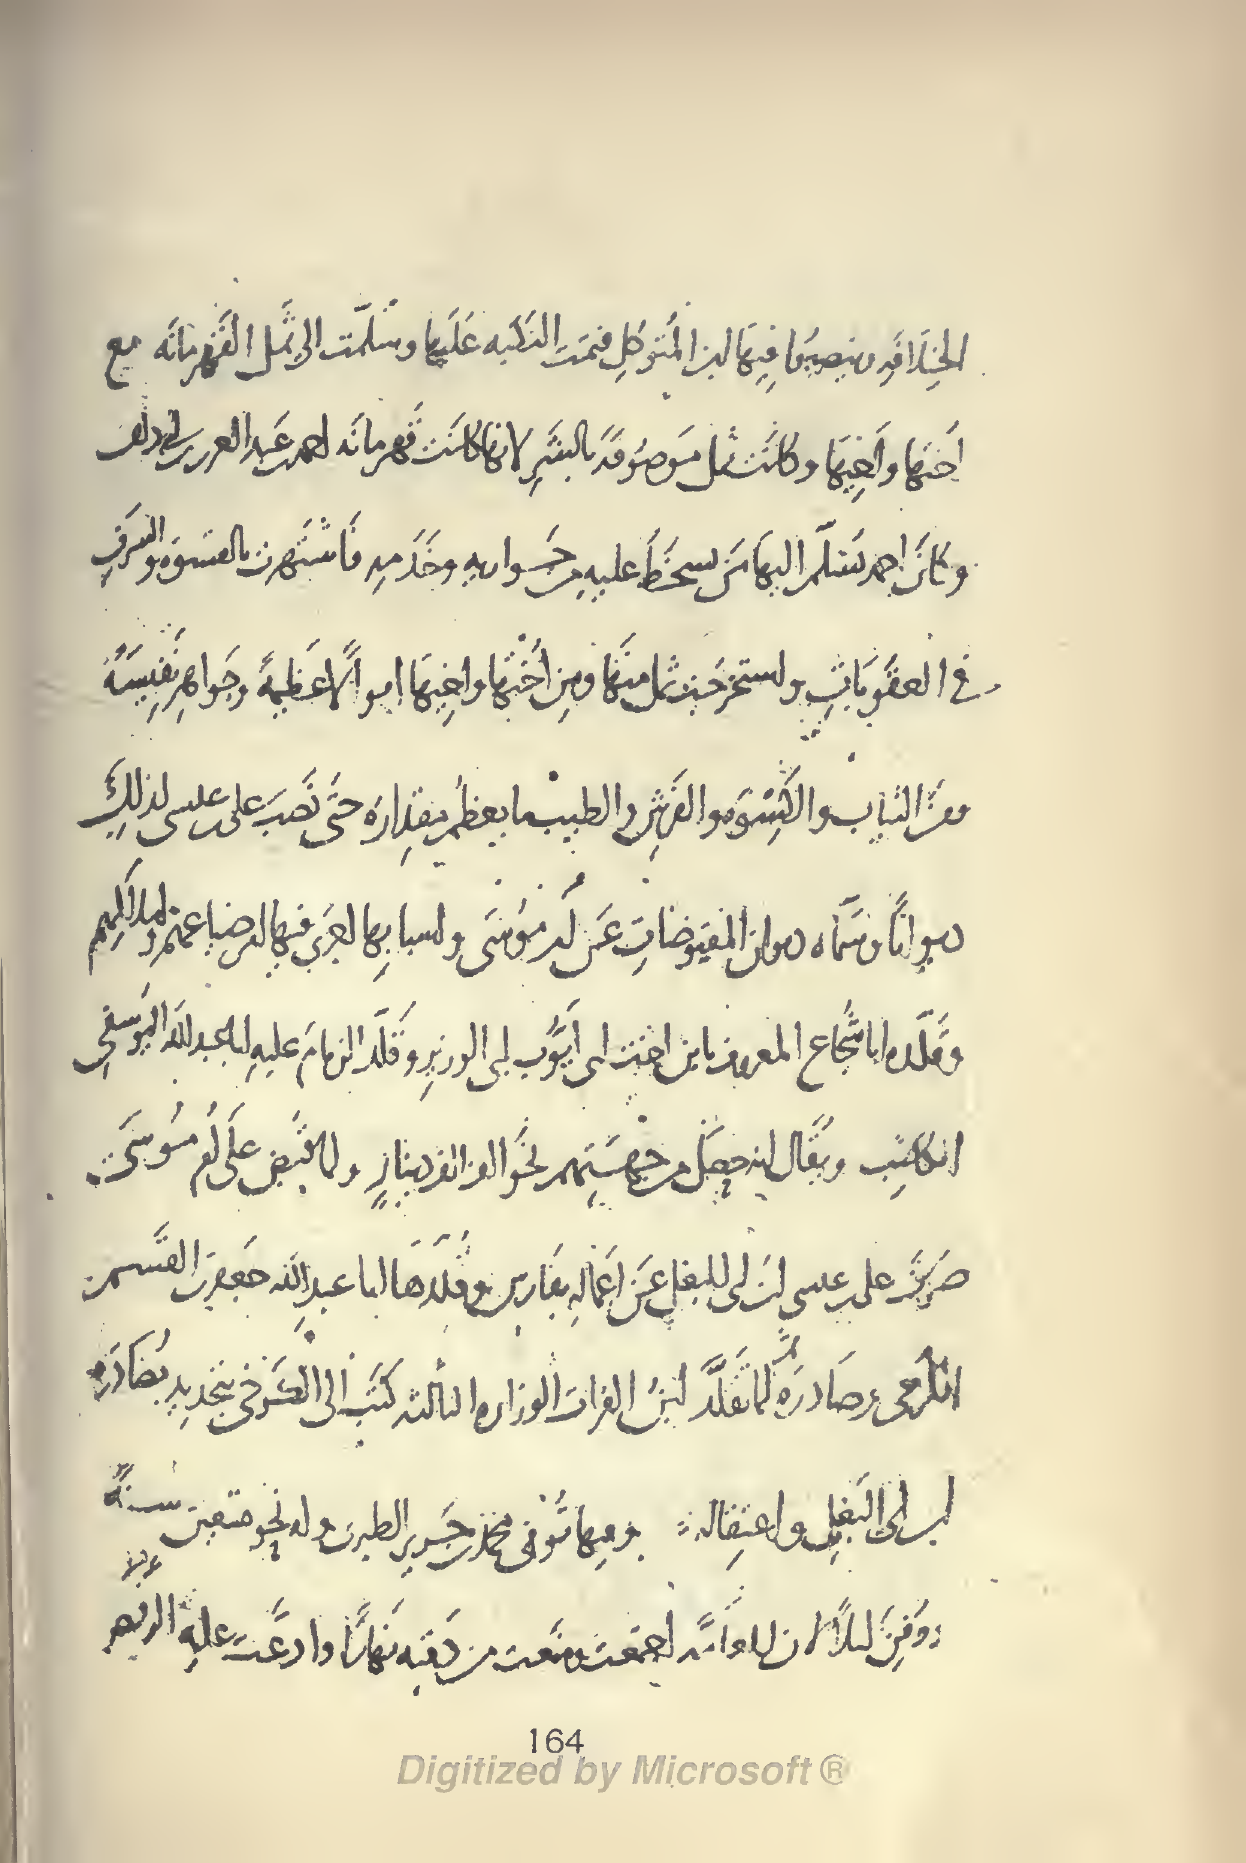 الخِلَافَةِ ونصبها فيها لابن المتوكل فتمت النكبة عَلَيها وسُلّمت الى ثمل القَهْرمانَه مع
اُختها واَخِيهَا وكانَت ثمل مَوصُوفَةً بالشَرِ لانها كانَت قَهرمانَه احمد بن عَبد العزيز بن ابى دلف
وكانَ احمد يُسَلّم اليها مَن سخَطَ عليهِ من جَواريهِ وخَدَمهِ فَاشتَهرت بالقسوَه والسرَفِ
فى العقُوبَاتِ واستخرجَت ثمل منهَا ومِن اُختها واخِيهَا اموالًا عَظِيمةً وجَواهِر نَفِيسَةً
ومن الثياب والكِسْوَه والفَرشِ والطيب ما يعظُم مقدارهُ حتَّى نَصَبَ على بن عيسى لذلكَ
ديوانًا وسَمَّاه ديوان المقبوضاتِ عَن اُم مُوسَى واسبابها اجرى فيها امر ضياعهم واملاكهم
وقَلّده ابا شُجاع المعروف بابن اخت ابى ايُّوب ابى الوزيرِ وقَلَّد الزمامَ عليهِ ابا عبد الله اليُوسفى
الكاتِب ويُقَال انه حصَلَ من جهَتِهم نحو الف الف دينارٍ ولما قُبض عَلَى اُم مُوسَى
صَرَفَ على بن عيسى ابن ابى البغل عَن اَعمالهِ بفَارس وقُلّدَهَا ابا عبدِ الله جَعفر بن القَسم
الكرخى وصَادرَه ثم لما تقَلَّدَ ابنُ الفرات الوزاره الثالثه كتَبَ الى الكَرخى بتجديدِ مُصَادَرَه
ابن ابى البَغلِ واعتِقاله
وفيها تُوفى محمد بن جَرير الطبرى وله نحو من تسعين سنةً
ودُفِنَ ليلًا لان العامَّه اجتمعت ومنَعت من دَفنِه نَهارًا وادعَت عليهِ الرفض
164
Digitized by Microsoft ®